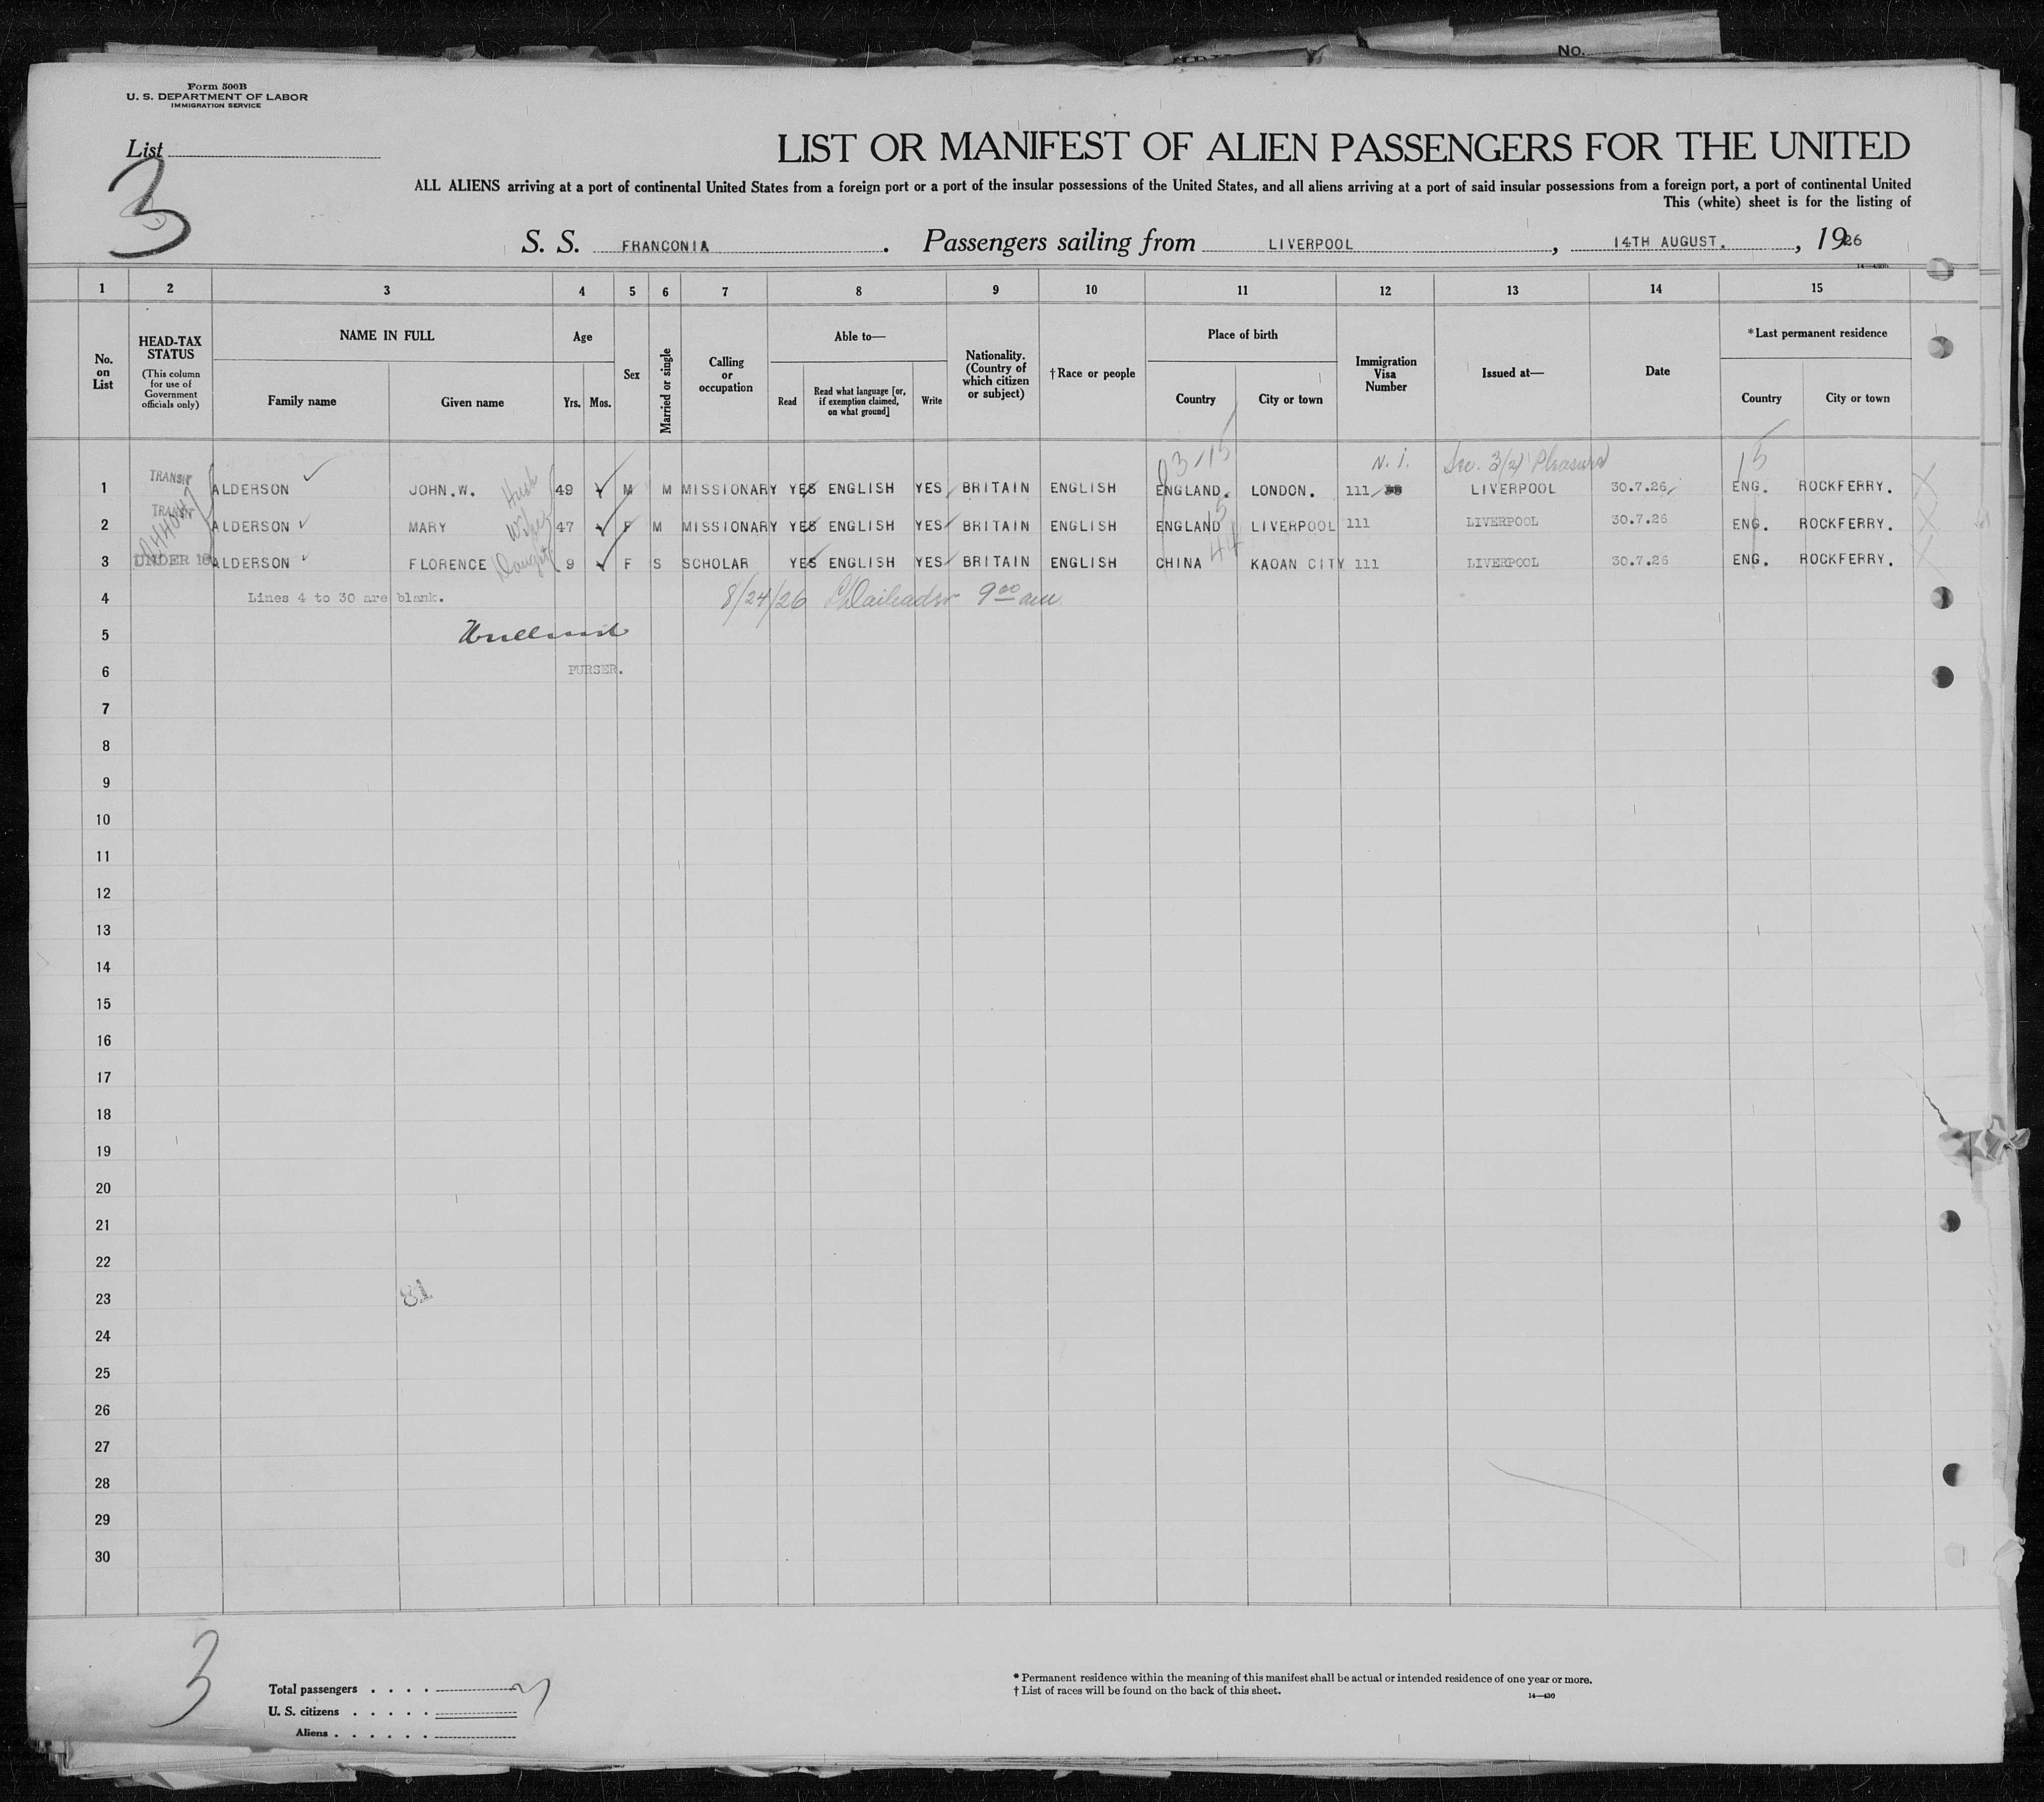 No.
Form 500B
U. S. DEPARTMENT OF LABOR
IMMIGRATION SERVICE
List
3
LIST OR MANIFEST OF ALIEN PASSENGERS FOR THE UNITED
ALL ALIENS arriving at a port of continental United States from a foreign port or a port of the insular possessions of the United States, and all aliens arriving at a port of said insular possessions from a foreign port, a port of continental United
This (white) sheet is for the listing of
S. S. FRANCONIA. Passengers sailing from LIVERPOOL, 14TH AUGUST., 1926
1 2 3 4 5 6 7 8 9 10 11 12 13 14 15
No. on List
HEAD-TAX STATUS
(This column for use of Government officials only)
NAME IN FULL
Family name Given name
Age
Yrs. Mos.
Sex
Married or single
Calling or occupation
Able to—
Read
Read what language [or, if exemption claimed, on what ground]
Write
Nationality. (Country of which citizen or subject)
†Race or people
Place of birth
Country City or town
Immigration Visa Number
Issued at—
Date
*Last permanent residence
Country City or town
3-15 N. I. Sec. 3(2) Pleasure 15
1 TRANSIT ALDERSON JOHN.W. Husb 49 M M MISSIONARY YES ENGLISH YES BRITAIN ENGLISH ENGLAND. LONDON. 111 LIVERPOOL 30.7.26 ENG. ROCKFERRY.
2 TRANSIT ALDERSON MARY Wife 47 F M MISSIONARY YES ENGLISH YES BRITAIN ENGLISH ENGLAND 5 LIVERPOOL 111 LIVERPOOL 30.7.26 ENG. ROCKFERRY.
3 UNDER 16 ALDERSON FLORENCE Daught 9 F S SCHOLAR YES ENGLISH YES BRITAIN ENGLISH CHINA 44 KAOAN CITY 111 LIVERPOOL 30.7.26 ENG. ROCKFERRY.
4 Lines 4 to 30 are blank. 8/24/26 9 00 am
5
6 PURSER.
7
8
9
10
11
12
13
14
15
16
17
18
19
20
21
22
23 81
24
25
26
27
28
29
30
3
Total passengers . . . .
U. S. citizens . . . . .
Aliens . . . . . .
* Permanent residence within the meaning of this manifest shall be actual or intended residence of one year or more.
† List of races will be found on the back of this sheet.
14—430